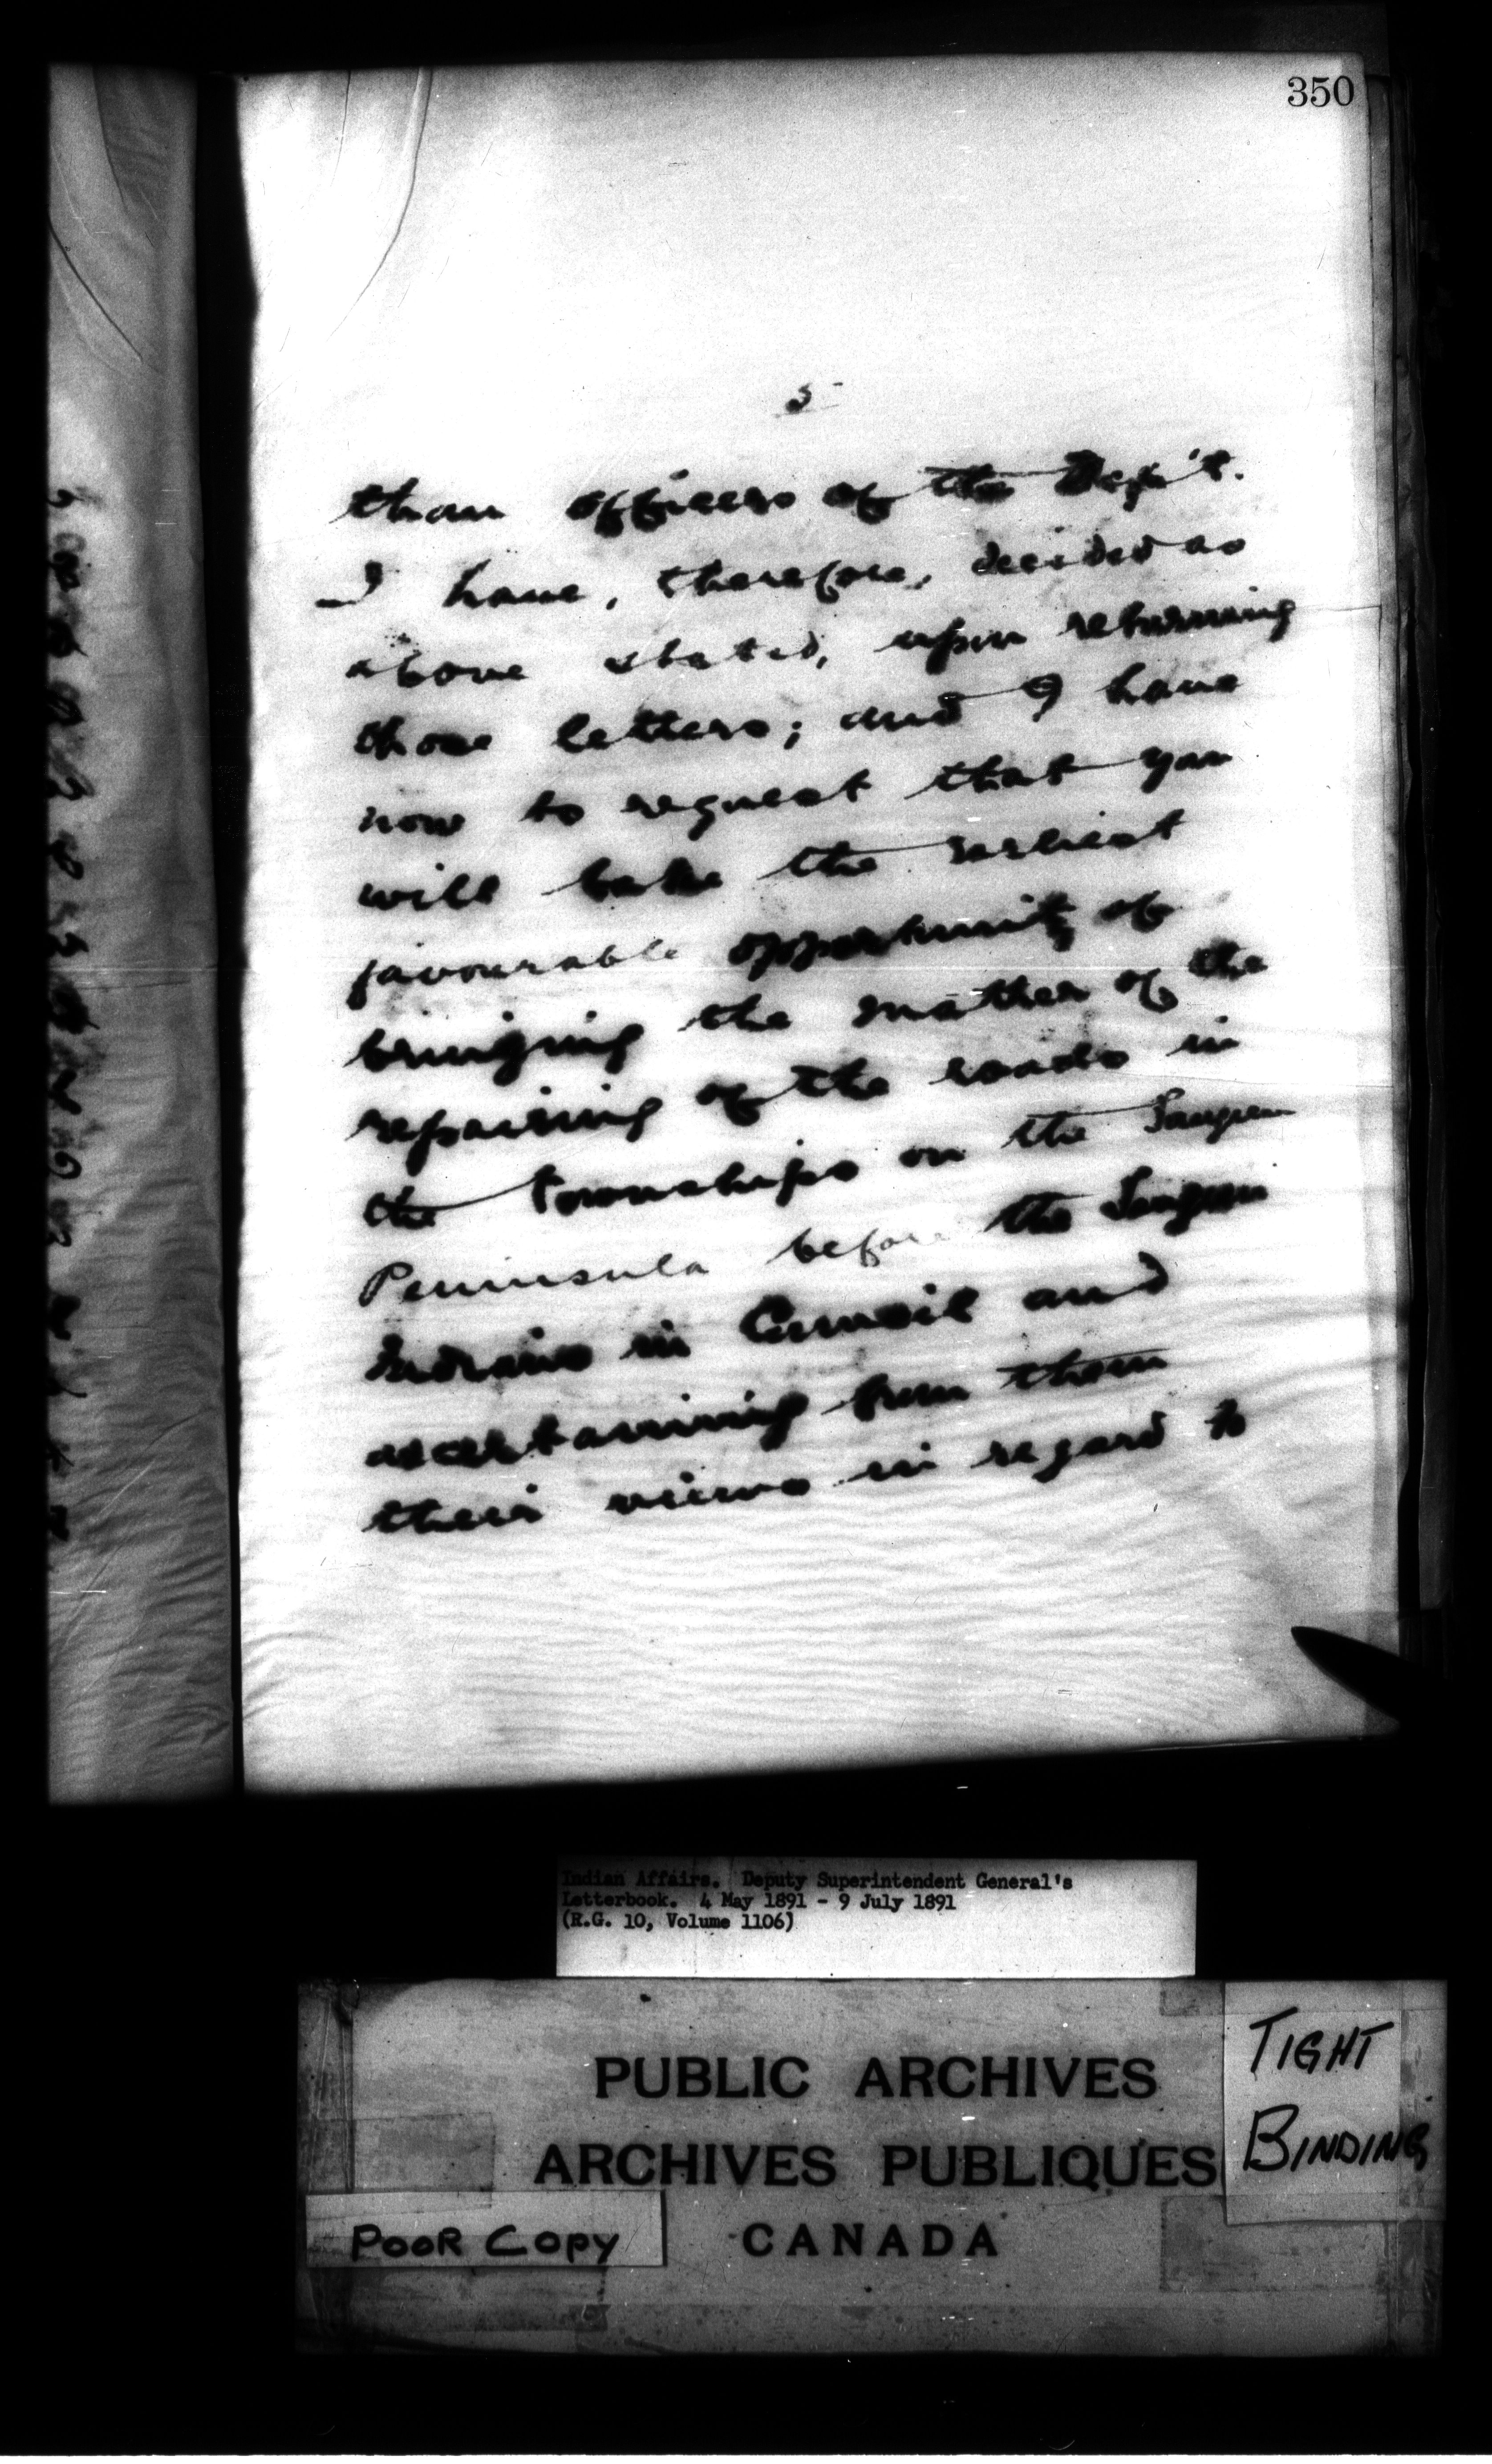 350
5
than officers of the Dep't.
I have, therefore, decided as
above stated, upon returning
those letters; and I have
now to request that you
will take the earliest
favourable opportunity of
bringing the matter of the
repairing of the roads in
the Townships on the Saugeen
Peninsula before the Saugeen
Indians in Council and
ascertaining from them
their views in regard to
Indian Affairs. Deputy Superintendent General's
Letterbook. 4 May 1891 - 9 July 1891
(R.G. 10, Volume 1106)
PUBLIC ARCHIVES
ARCHIVES PUBLIQUES
CANADA
TIGHT
BINDING
POOR COPY